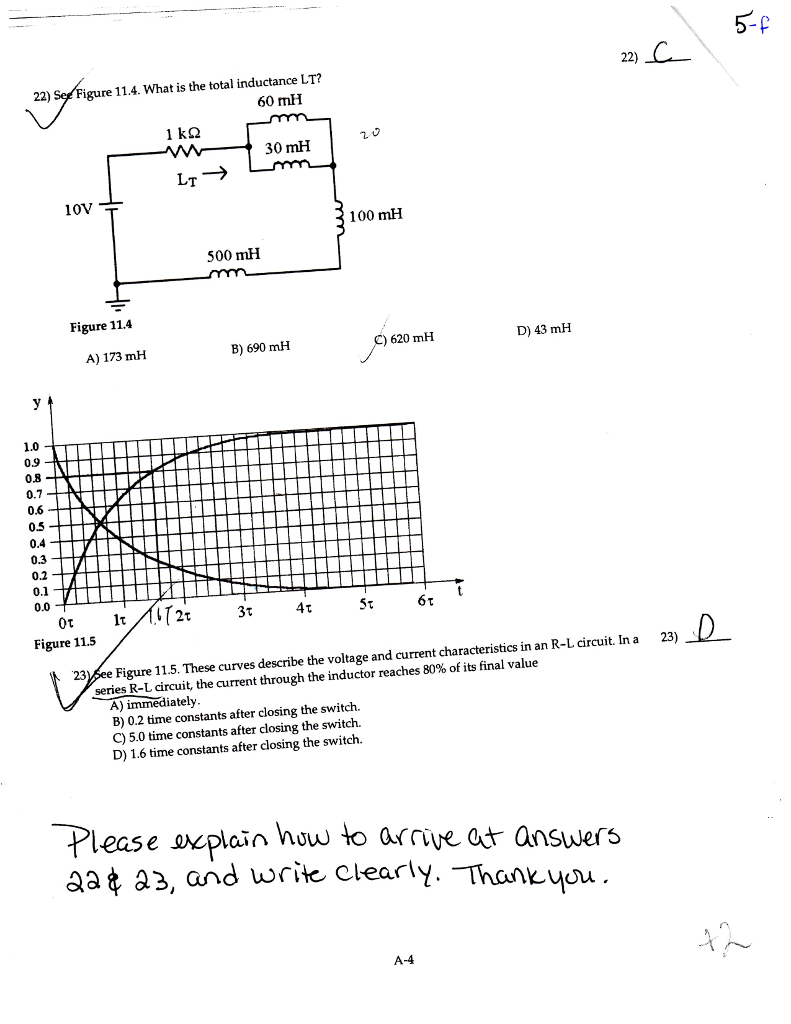 5-f
22) C
22) See Figure 11.4. What is the total inductance LT?
60 mH
1 kΩ
20
30 mH
LT →
10V
100 mH
500 mH
Figure 11.4
A) 173 mH B) 690 mH C) 620 mH D) 43 mH
y
1.0
0.9
0.8
0.7
0.6
0.5
0.4
0.3
0.2
0.1
0.0
0τ 1τ 1.6τ 2τ 3τ 4τ 5τ 6τ t
Figure 11.5
23) See Figure 11.5. These curves describe the voltage and current characteristics in an R-L circuit. In a 23) D
series R-L circuit, the current through the inductor reaches 80% of its final value
A) immediately.
B) 0.2 time constants after closing the switch.
C) 5.0 time constants after closing the switch.
D) 1.6 time constants after closing the switch.
Please explain how to arrive at answers
22 & 23, and write clearly. Thank you.
+2
A-4